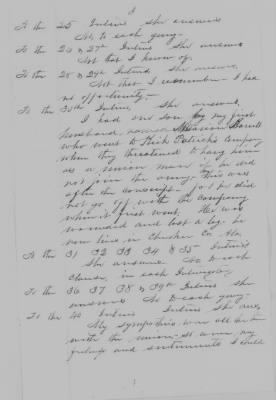 3
To the 25 Inter'g She answers
No, to each ques.
To the 26 & 27th Inter'g She answers
Not that I know of.
To the 28 & 29th Inter'g She answers
Not that I remember - I had
no opportunity.
To the 30th Inter'g She answers,
I had one son by my first
husband, named Barrett
who went to Kirk Patrick's Company
when they threatened to hang him
as a Union man if he did
not join the army. This was
after the conscript - for he did
not go off with the company
when it first went. He was
wounded and lost a leg. he
now lives in Cherokee Co. Ala.
To the 31 32 33 34 & 35 Inter'g
She answers No to each
clause, in each Interrog.
To the 36 37 38 & 39th Inter'g she
answers No to each ques.
To the 40 Inter'g She ans,
My sympathies were all the time
with the union - at
feelings and sentiments I could